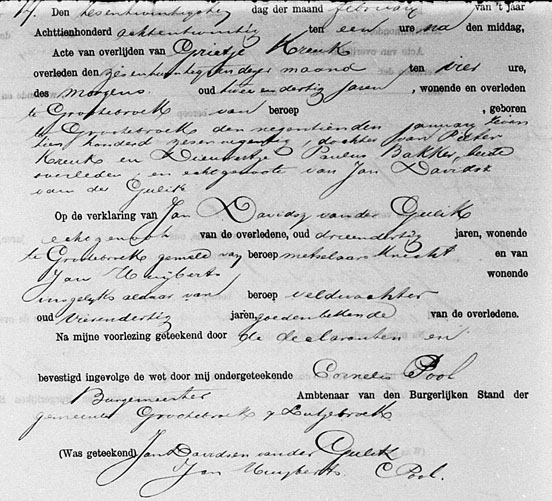 Den zesentwintigste dag der maand february van 't jaar
Achttienhonderd achtentwintig ten een ure na den middag,
Acte van overlijden van Grietje Kreuk
overleden den zesentwintig dezer maand ten vier ure,
des morgens oud twee en dertig jaren, wonende en overleden
te Grootebroek van beroep , geboren
te Grootebroek den negentienden january
tien honderd zesennegentig, dochter van Pieter
Kreuk en Dieuwertje Paulus Bakker, beide
overleden, en echtgenoote van Jan Davidsz
van der Gulik
Op de verklaring van Jan Davidsz van der Gulik
echtgenoot van de overledene, oud drieendertig jaren, wonende
te Grootebroek gemeld van beroep metselaars knecht en van
Jan Muijberts wonende
aldaar van beroep veldwachter
oud vierendertig jaren, goedenbekende van de overledene.
Na mijne voorlezing geteekend door de declaranten en
bevestigd ingevolge de wet door mij ondergeteekende Cornelis Pool
Burgemeester Ambtenaar van den Burgerlijken Stand der
gemeente Grootebroek & Lutjebroek
(Was geteekend) Jan Davidsen van der Gulik
Jan Muyberts C Pool.